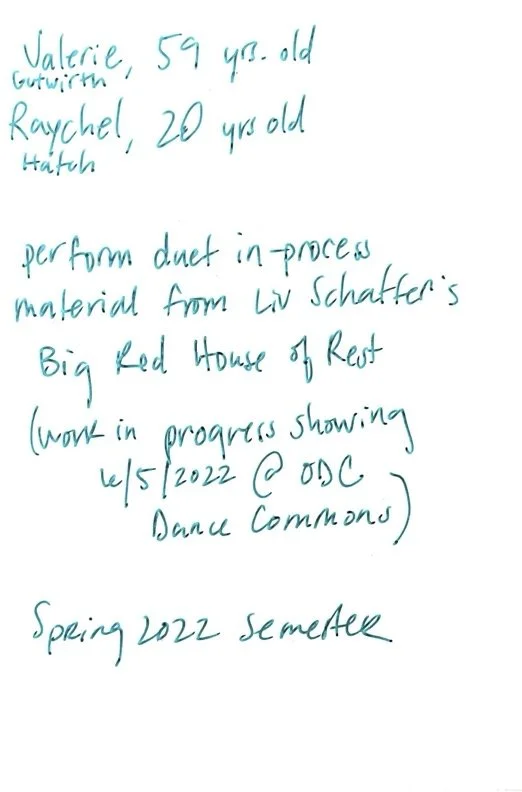 Valerie, 59 yrs. old
Gutwirth
Raychel, 20 yrs old
Hatch
perform duet in-process
material from Liv Schaffer's
Big Red House of Rest
(work in progress showing
6/5/2022 @ ODC
Dance Commons)
Spring 2022 semester